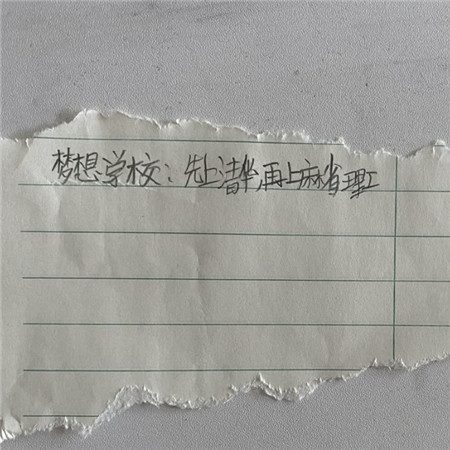 梦想学校：先上清华,再上麻省理工